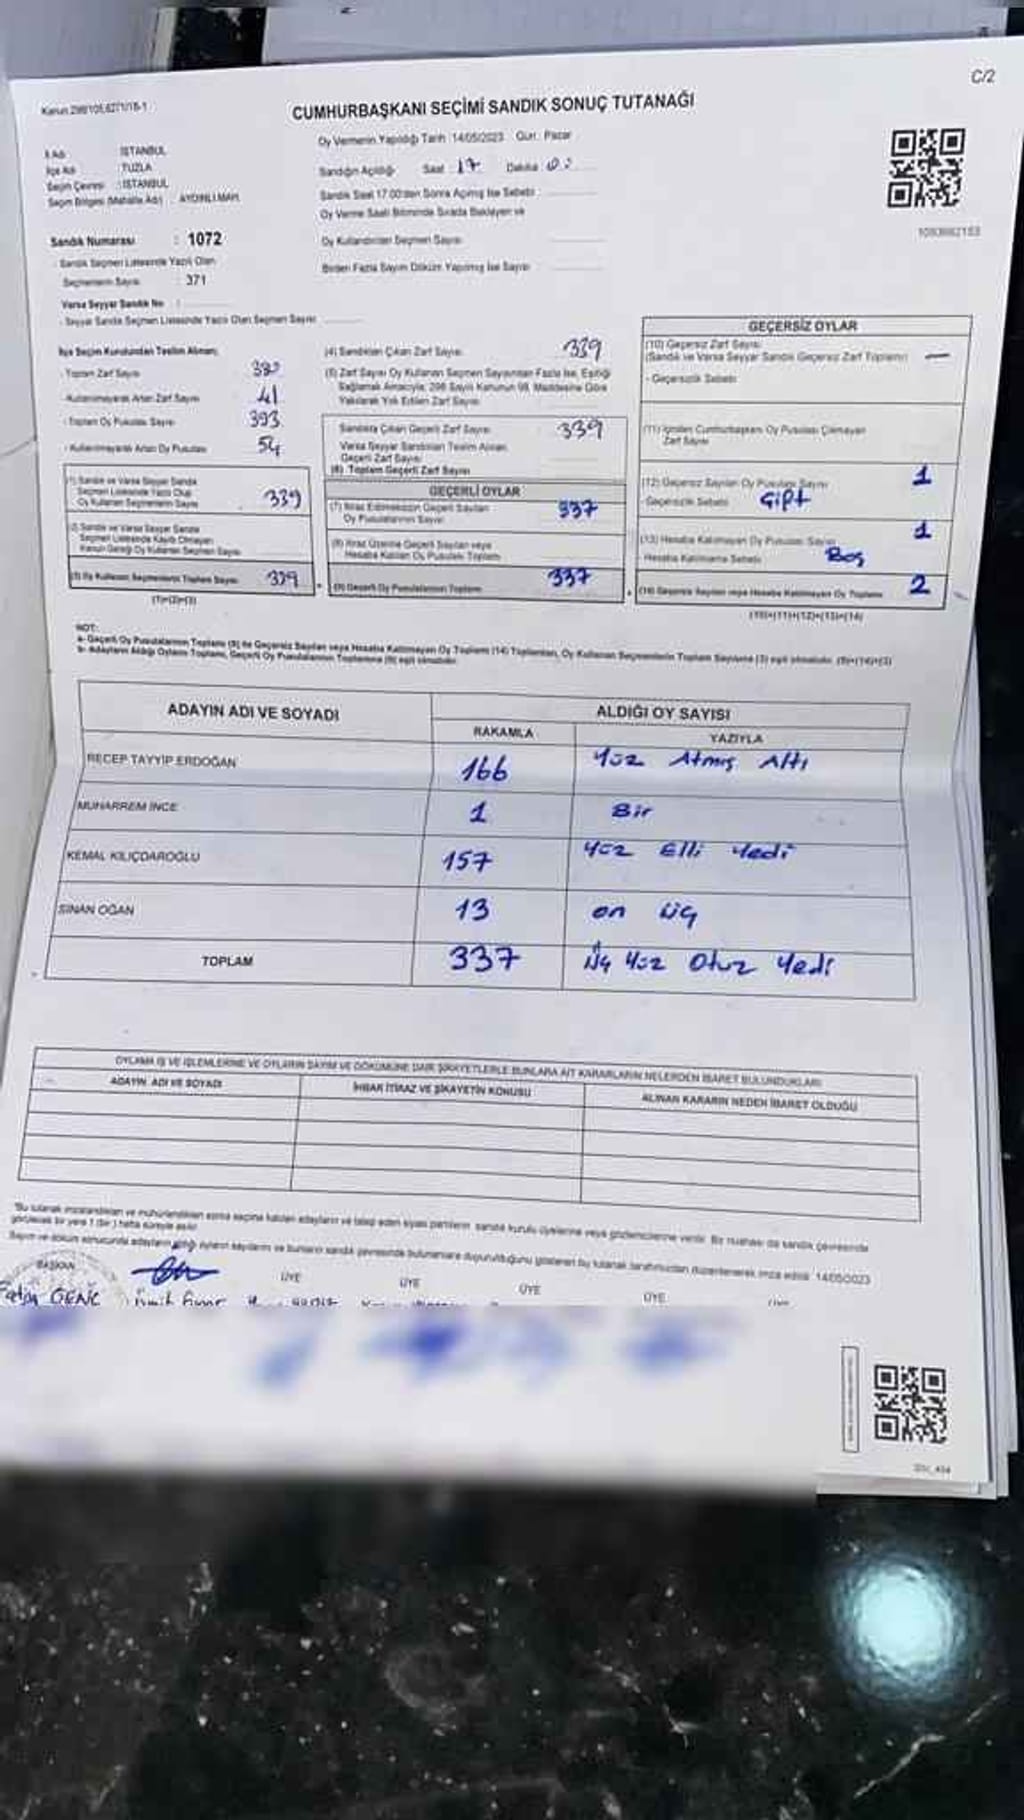 C/2
Kanun 298/105,6271/18-1
CUMHURBAŞKANI SEÇİMİ SANDIK SONUÇ TUTANAĞI
İl Adı : İSTANBUL
İlçe Adı : TUZLA
Seçim Çevresi : İSTANBUL
Seçim Bölgesi (Mahalle Adı) : AYDINLI MAH.
Oy Vermenin Yapıldığı Tarih :14/05/2023 Gün: Pazar
Sandığın Açıldığı Saat 17 Dakika
Sandık Saat 17.00'den Sonra Açılmış İse Sebebi
Oy Verme Saati Bitiminde Sırada Bekleyen ve
Oy Kullandırılan Seçmen Sayısı
Birden Fazla Sayım Döküm Yapılmış İse Sayısı
Sandık Numarası : 1072
- Sandık Seçmen Listesinde Yazılı Olan
Seçmenlerin Sayısı : 371
Varsa Seyyar Sandık No :
- Seyyar Sandık Seçmen Listesinde Yazılı Olan Seçmen Sayısı
İlçe Seçim Kurulundan Teslim Alınan;
- Toplam Zarf Sayısı 380
- Kullanılmayarak Artan Zarf Sayısı 41
- Toplam Oy Pusulası Sayısı 393
- Kullanılmayarak Artan Oy Pusulası 54
(1) Sandık ve Varsa Seyyar Sandık
Seçmen Listesinde Yazılı Olup
Oy Kullanan Seçmenlerin Sayısı 339
(2) Sandık ve Varsa Seyyar Sandık
Seçmen Listesinde Kayıtlı Olmayan
Kanun Gereği Oy Kullanan Seçmen Sayısı
(3) Oy Kullanan Seçmenlerin Toplam Sayısı 339
(1)+(2)=(3)
(4) Sandıktan Çıkan Zarf Sayısı 339
(5) Zarf Sayısı Oy Kullanan Seçmen Sayısından Fazla İse, Eşitliği
Sağlamak Amacıyla, 298 Sayılı Kanunun 98. Maddesine Göre
Yakılarak Yok Edilen Zarf Sayısı
Sandıkta Çıkan Geçerli Zarf Sayısı 339
Varsa Seyyar Sandıktan Teslim Alınan
Geçerli Zarf Sayısı
(6) Toplam Geçerli Zarf Sayısı
GEÇERLİ OYLAR
(7) İtiraz Edilmeksizin Geçerli Sayılan
Oy Pusulalarının Sayısı 337
(8) İtiraz Üzerine Geçerli Sayılan veya
Hesaba Katılan Oy Pusulası Toplamı
(9) Geçerli Oy Pusulalarının Toplamı 337
GEÇERSİZ OYLAR
(10) Geçersiz Zarf Sayısı
(Sandık ve Varsa Seyyar Sandık Geçersiz Zarf Toplamı) —
- Geçersizlik Sebebi
(11) İçinden Cumhurbaşkanı Oy Pusulası Çıkmayan
Zarf Sayısı
(12) Geçersiz Sayılan Oy Pusulası Sayısı 1
- Geçersizlik Sebebi Çift
(13) Hesaba Katılmayan Oy Pusulası Sayısı 1
- Hesaba Katılmama Sebebi Boş
(14) Geçersiz Sayılan veya Hesaba Katılmayan Oy Toplamı 2
(10)+(11)+(12)+(13)=(14)
NOT:
a- Geçerli Oy Pusulalarının Toplamı (9) ile Geçersiz Sayılan veya Hesaba Katılmayan Oy Toplamı (14) Toplamları, Oy Kullanan Seçmenlerin Toplam Sayısına (3) eşit olmalıdır. (9)+(14)=(3)
b- Adayların Aldığı Oyların Toplamı, Geçerli Oy Pusulalarının Toplamına (9) eşit olmalıdır.
ADAYIN ADI VE SOYADI ALDIĞI OY SAYISI
RAKAMLA YAZIYLA
RECEP TAYYİP ERDOĞAN 166 Yüz Atmış Altı
MUHARREM İNCE 1 Bir
KEMAL KILIÇDAROĞLU 157 Yüz Elli Yedi
SİNAN OĞAN 13 on üç
TOPLAM 337 Üç Yüz Otuz Yedi
OYLAMA İŞ VE İŞLEMLERİNE VE OYLARIN SAYIM VE DÖKÜMÜNE DAİR ŞİKAYETLERLE BUNLARA AİT KARARLARIN NELERDEN İBARET BULUNDUKLARI
ADAYIN ADI VE SOYADI İHBAR İTİRAZ VE ŞİKAYETİN KONUSU ALINAN KARARIN NEDEN İBARET OLDUĞU
"Bu tutanak imzalandıktan ve mühürlendikten sonra seçime katılan adayların ve talep eden siyasi partilerin sandık kurulu üyelerine veya gözlemcilerine verilir. Bir nüshası da sandık çevresinde
görülecek bir yere 1 (bir) hafta süreyle asılır.
Sayım ve döküm sonucunda adayların aldığı oyların sayılarını ve bunların sandık çevresinde bulunanlara duyurulduğunu gösteren bu tutanak tarafımızdan düzenlenerek imza edildi. 14/05/2023
BAŞKAN ÜYE ÜYE ÜYE ÜYE
GENÇ